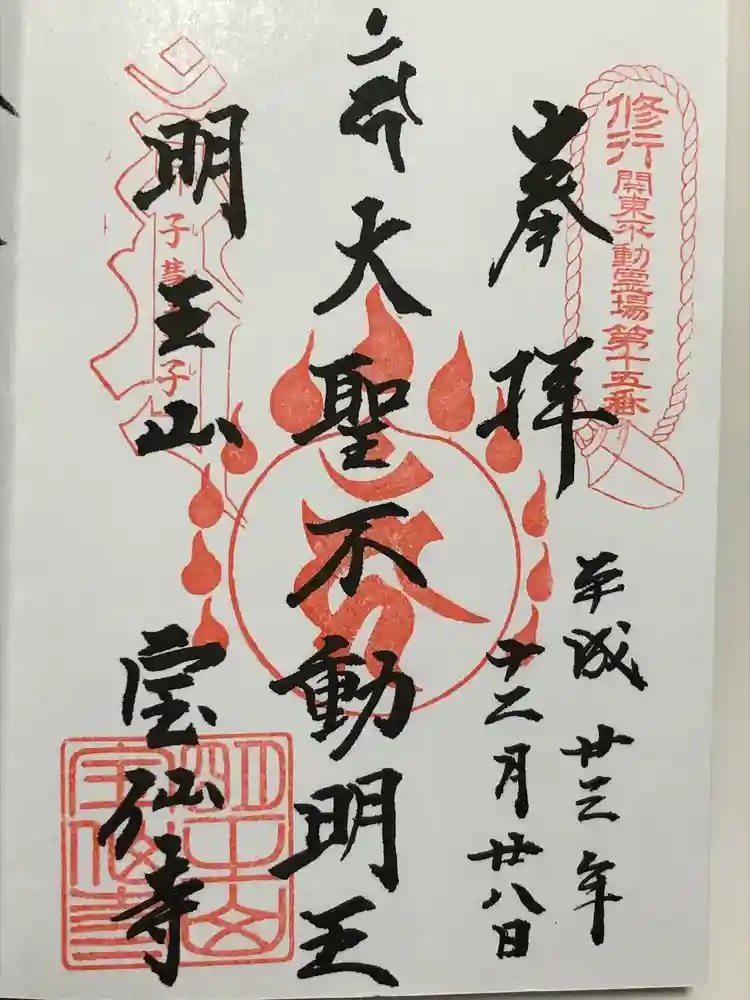 修行
関東不動霊場第十五番
奉拝
平成廿三年
十二月廿八日
大聖不動明王
明王山
宝仙寺